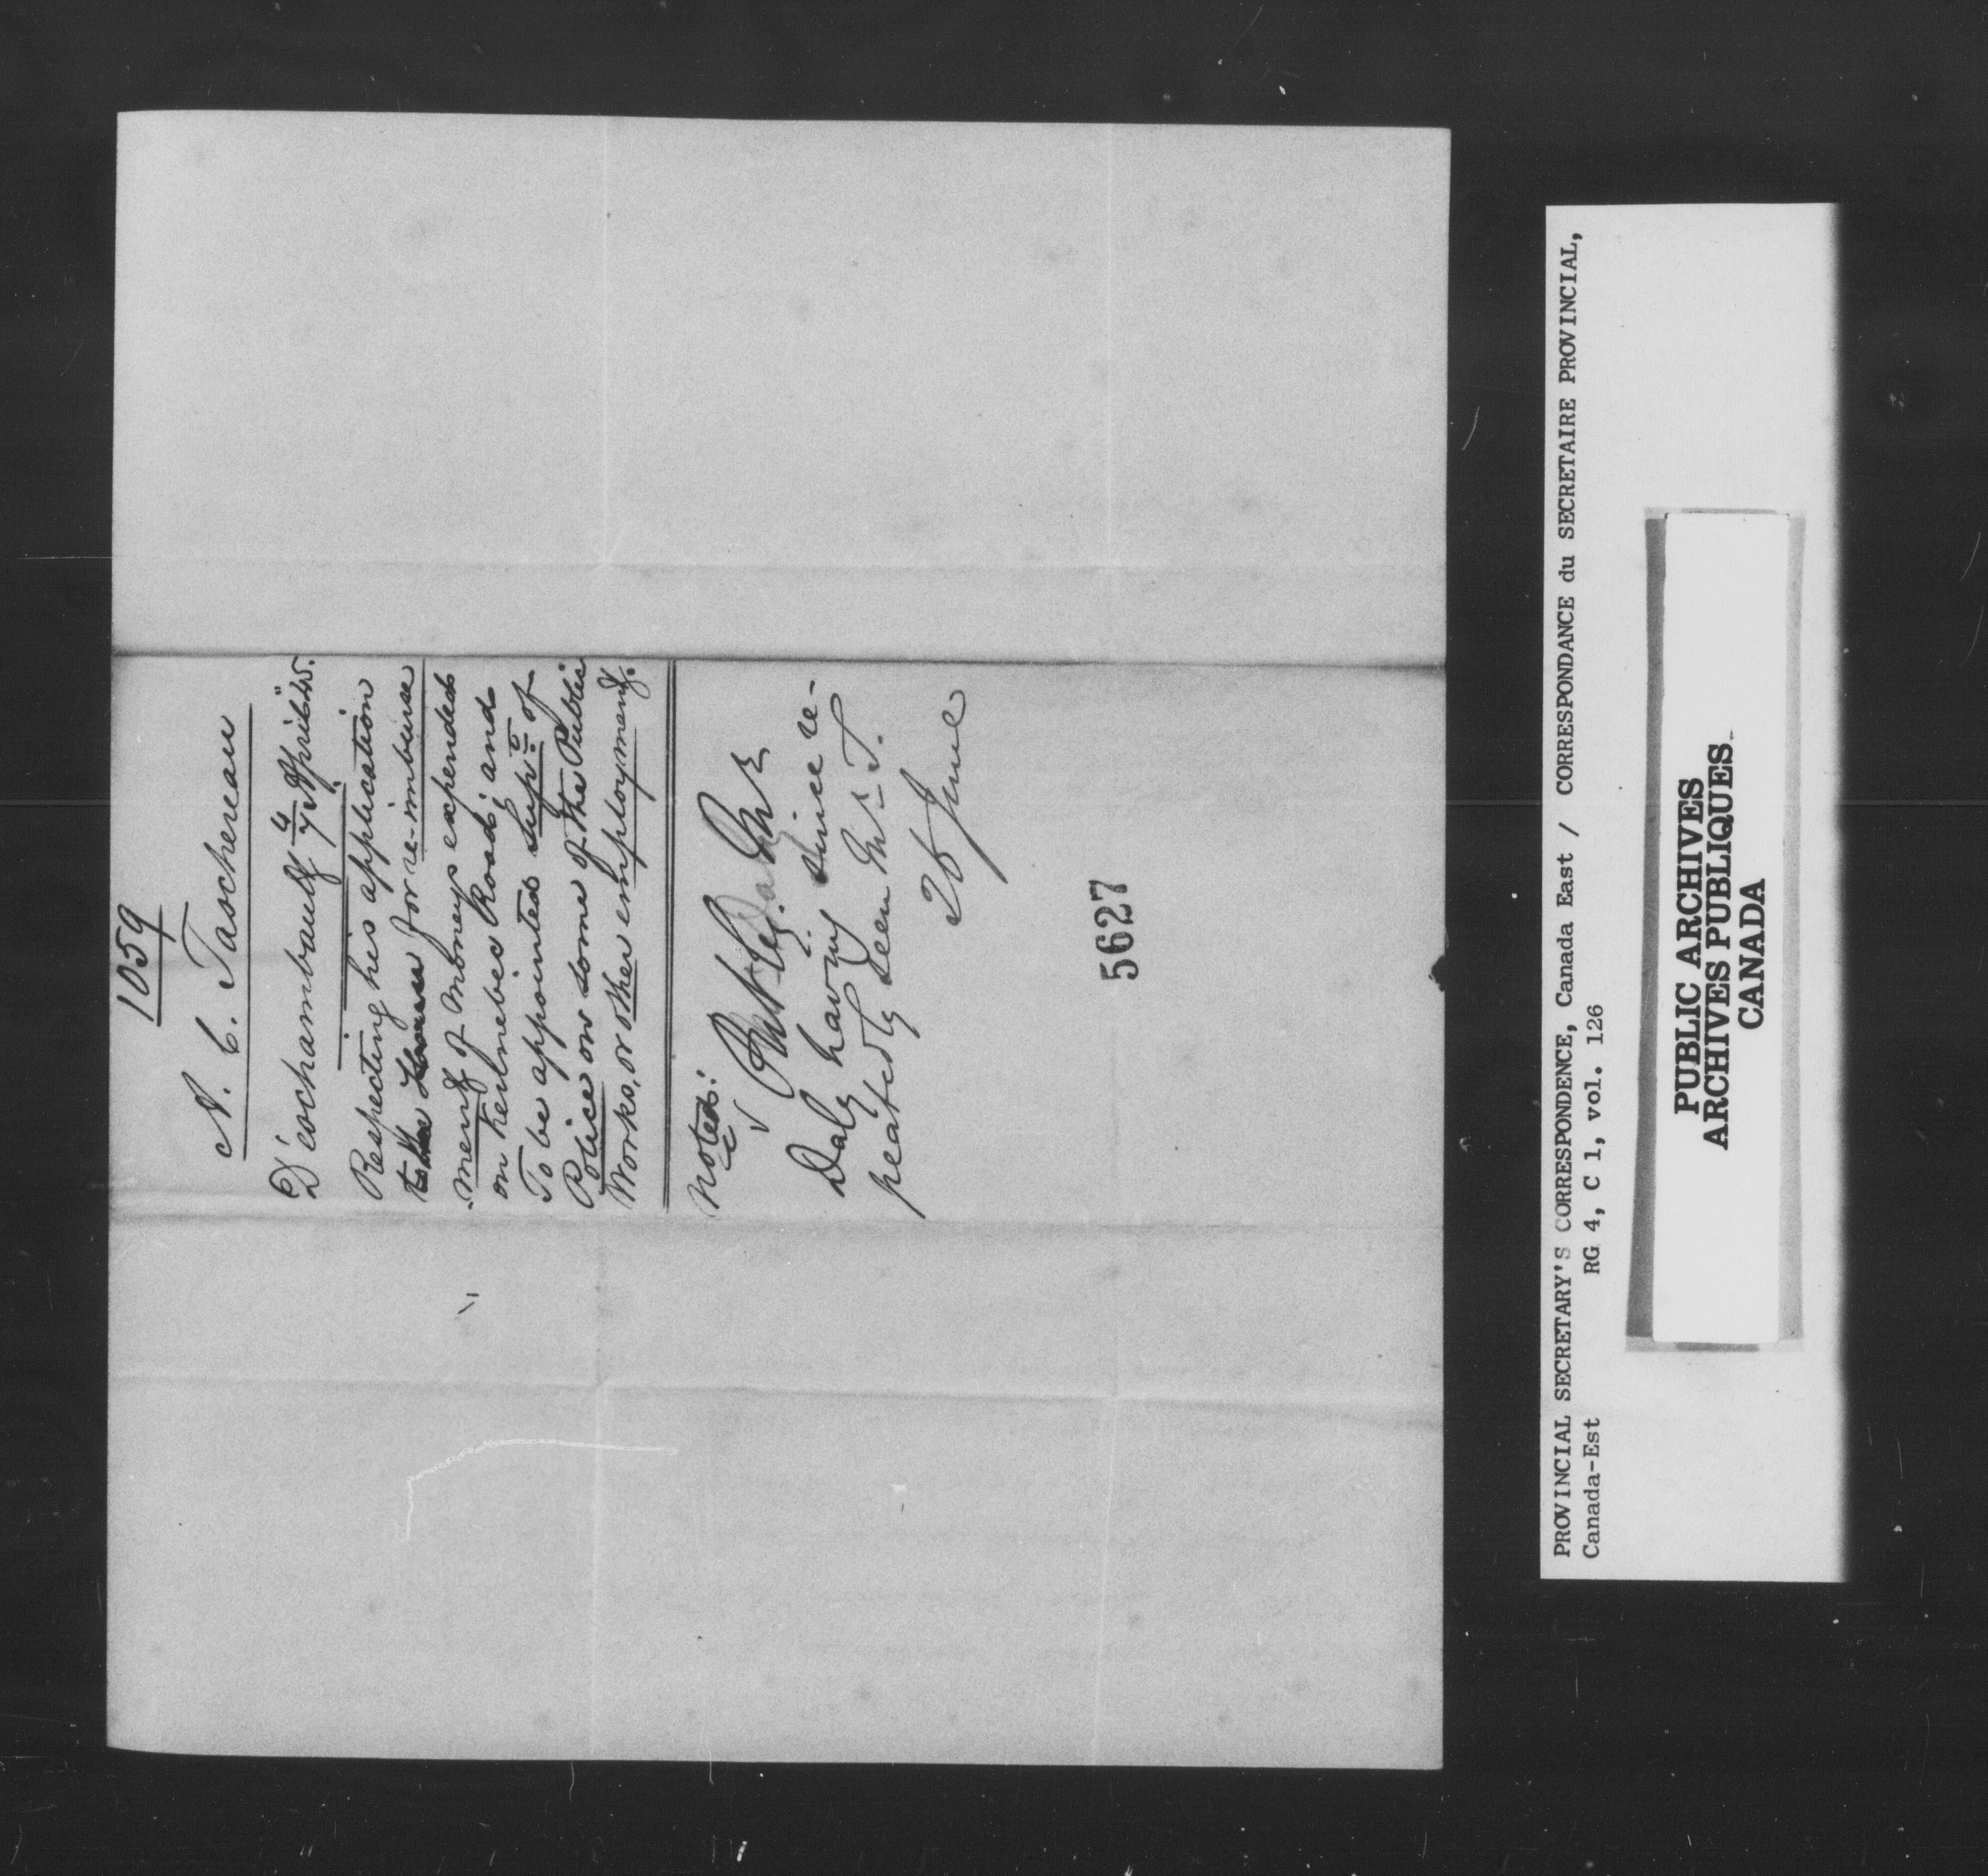 1059
N. C. Taschereau
D'eschambault 4/7 April "45.
Respecting his application
to the House for re-imburse
-ment of moneys expended
on Kennebec Road; and
To be appointed Sup.r of
Police on some of the Public
Works, or other employment.
Noted:
Put by. Mr
Daly having since re-
peatedly seen Mr T.
26 June
5627
PROVINCIAL SECRETARY'S CORRESPONDENCE, Canada East / CORRESPONDANCE du SECRETAIRE PROVINCIAL,
Canada-Est RG 4, C 1, vol. 126
PUBLIC ARCHIVES
ARCHIVES PUBLIQUES
CANADA